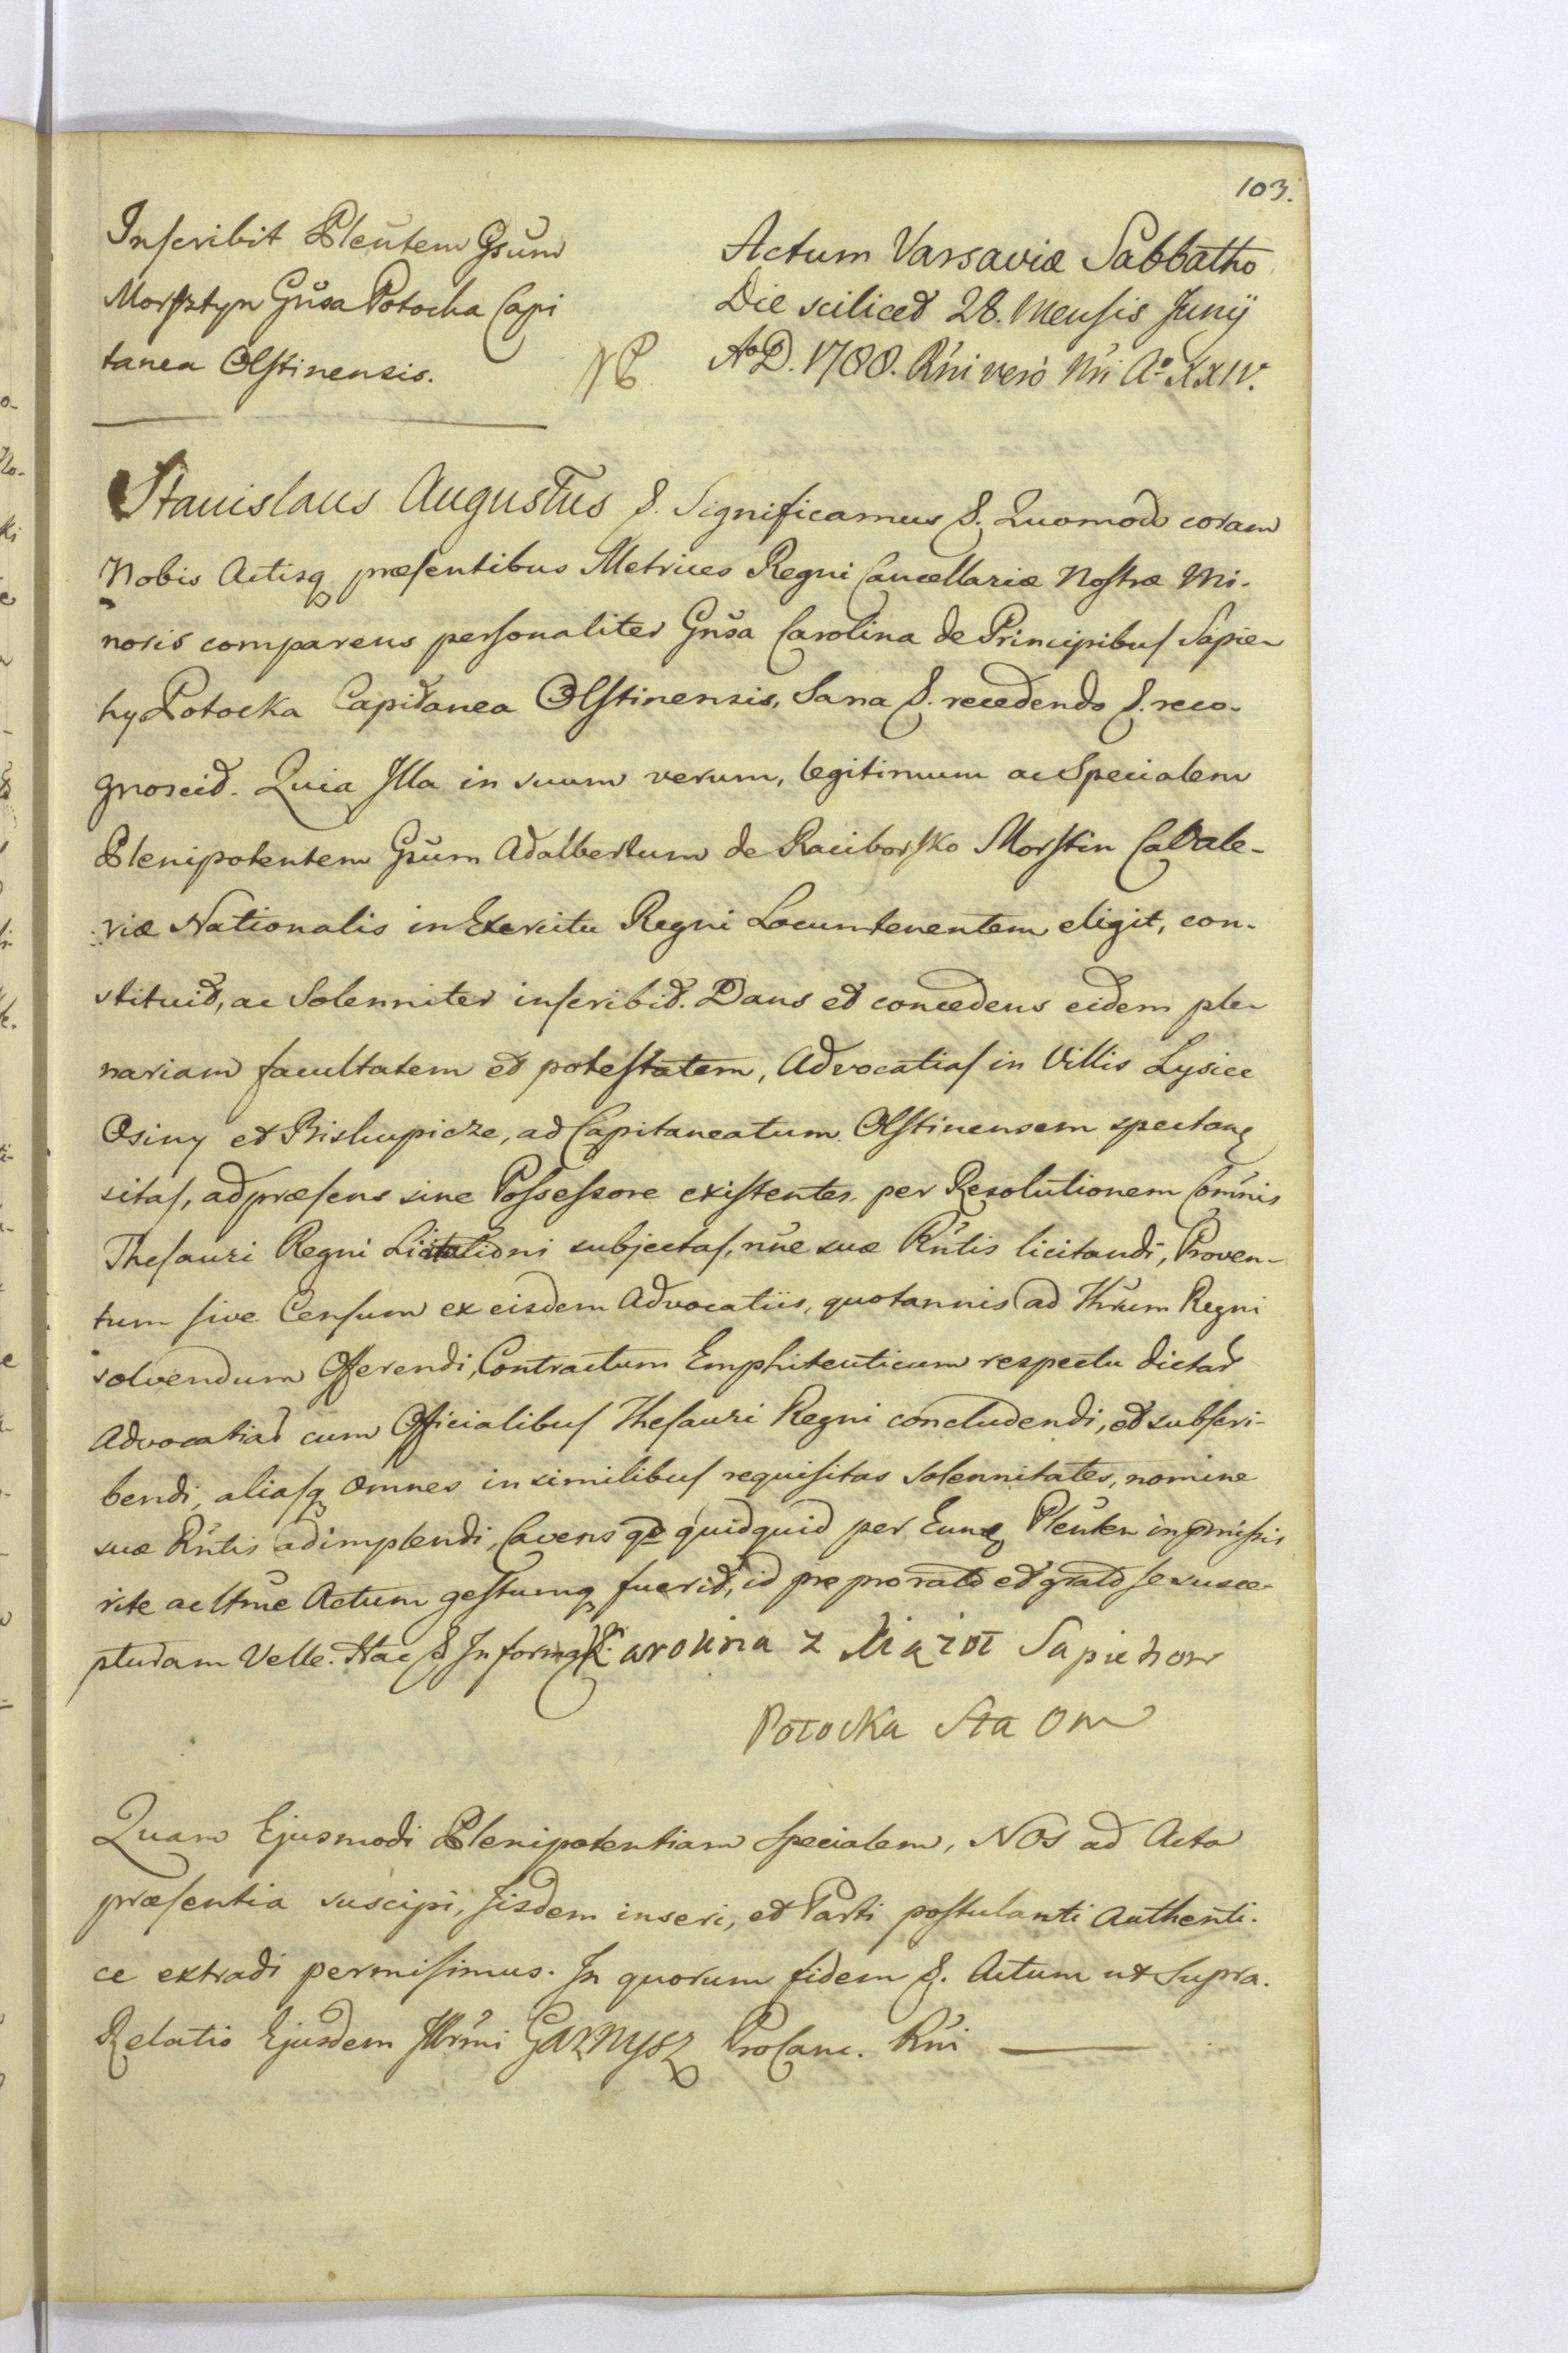 103.
Inscribit Pleñtem Gsũm
Morsztyn Gñsa Potocka Capi
tanea Olstinensis.
NB
Actum Varsaviæ Sabbatho
Die scilicet 28. Mensis Junij
Aõ D. 1788. Rñi verò Nri Aº XXIV.
Stanislaus Augustus &. Significamus &. Quomodo coram
Nobis Actisq præsentibus Metrices Regni Cancellariæ Nostræ Mi-
noris comparens personaliter Gnsa Carolina de Principibus Sapie-
hy Potocka Capitanea Olstinensis, Sana &. recedendo &. reco-
gnoscit. Quia Illa in suum verum, legitimum ac Specialem
Plenipotentem Gsum Adalbertum de Raciborsko Morstin Cavale-
riæ Nationalis in Exercitu Regni Locumtenentem eligit, con-
stituit, ac Solenniter inscribit. Dans et concedens eidem ple-
nariam facultatem et potestatem, Advocatias in Villis Lysiec
Osiny et Biskupicze, ad Capitaneatum Olstinensem spectan
sitas, ad præsens sine Possessore existentes, per Resolutionem Comnis
Thesauri Regni Licitationi subjectas, nñe suæ Rñtis licitandi, Proven-
tum sive Censum ex eisdem Advocatiis, quotannis ad Thrum Regni
solvendum Offerendi, Contractum Emphiteuticum respectu dictar
Advocatiar cum Officialibus Thesauri Regni concludendi, et subscri-
bendi, aliasq omnes in similibus requisitas solennitates, nomine
suæ Rñtis adimplendi, Cavens qd quidquid per Eunq Pleñten in pmissis
rite ac ltme Actum gestumq fuerit, id pro rato et grato se susce-
pturam Velle. Hac & In forma Karolina z Xiążąt Sapiehow
Potocka Sta Om
Quam Ejusmodi Plenipotentiam specialem, Nos ad Acta
præsentia suscipi, Iisdem inseri, et Parti postulanti Authenti-
ce extradi permisimus. In quorum fidem &. Actum ut Supra.
Relatio Ejusdem Illrmi Garnysz ProCanc. Rñi